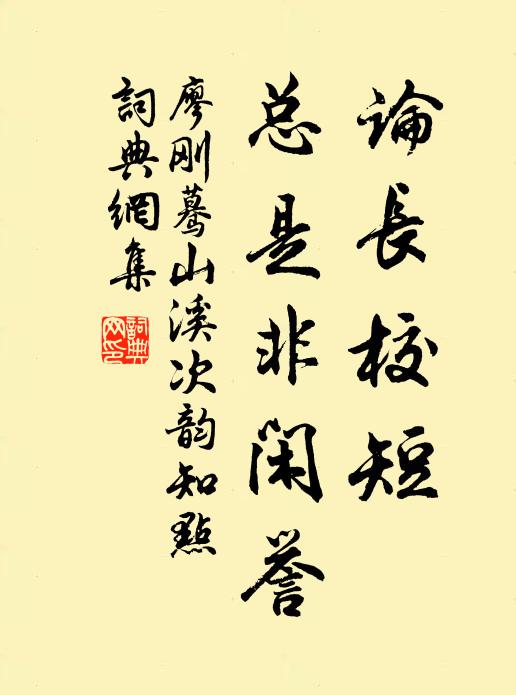 論長校短
总是非闲誉
廖刚蓦山溪次韵知點
詞典網集
詞典網印